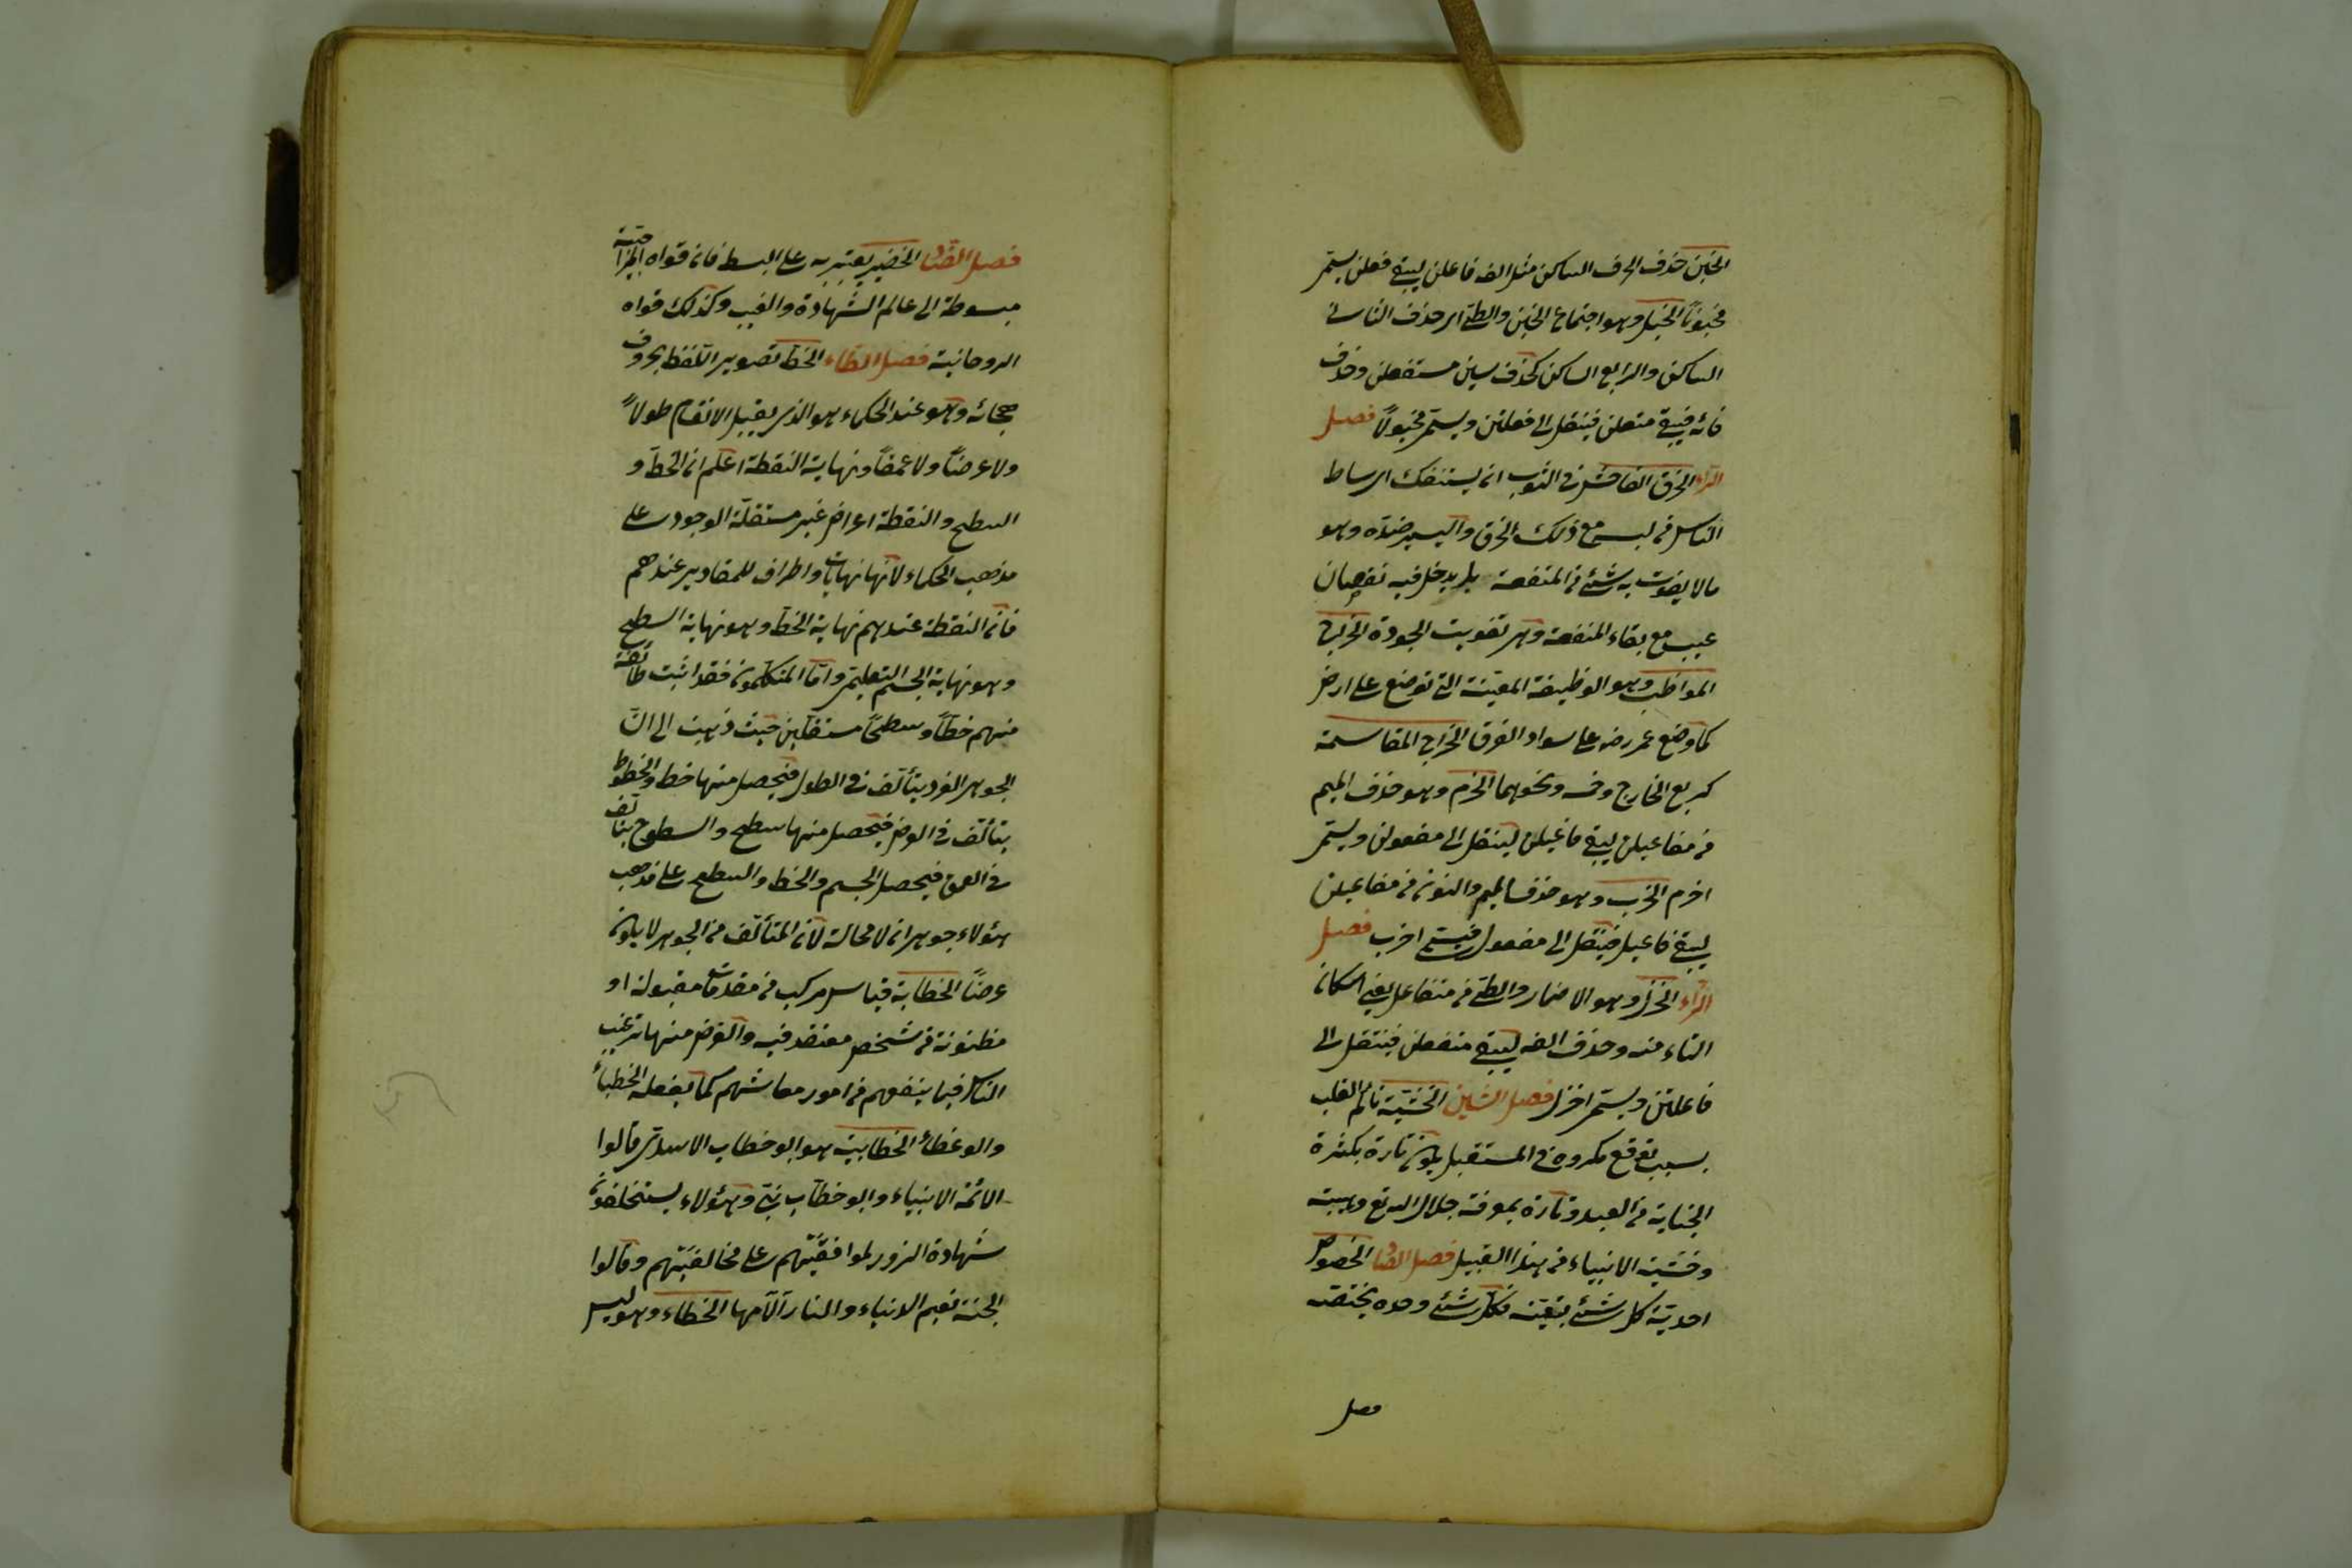 الخبن حذف الحرف الساكن مثل الف فاعلن ليبقى فعلن يسمى
مخبونا الخبل وهو اجتماع الخبن والطى اى حذف الثانى
الساكن والرابع الساكن كحذف سين مستفعلن وحذف
فائه فيبقى متعلن فينقل الى فعلتن ويسمى مخبولاً فصل
الراء الخرق الفاحش فى الثوب ان يستنكف اوساط
الناس فى لبسه مع ذلك الخرق واليسير ضده وهو
مالا يفوت به شئ من المنفعة بل يدخل فيه نقصان
عيب مع بقاء المنفعة وهو تفويت الجودة الخراج
الموظف وهو الوظيفة المعيّنة التى توضع على ارض
كما وضع عمر رضه على سواد العراق الخراج المقاسمة
كربع الخارج وخمسه ونحوهما الخرم وهو حذف الميم
من مفاعيلن ليبقى فاعيلن لينقل الى مفعولن ويسمى
اخرم الخرب وهو حذف الميم والنون من مفاعيلن
ليبقى فاعيل فينقل الى مفعول فيسمى اخرب فصل
الزاء الخزل وهو الاضمار والطى من متفاعلن يعنى اسكان
التاء منه وحذف الفه ليبقى متفعلن فينتقل الى
فاعلتن ويسمى اخزل فصل الشين الخشية تألم القلب
بسبب توقع مكروه فى المستقبل يكون تارة بكثرة
الجناية من العبد وتارة بمعرفة جلال الله تع وهيبته
وخشية الانبياء من هذا القبيل فصل الصاد الخصوص
احدية كل شئ بتعينه فكل شئ وحده يختصه
فصل
فصل الضاد الخضر يعبّر به على البسط فان قواه المزاجية
مبسوطة الى عالم الشهادة والغيب وكذلك قواه
الروحانية فصل الطاء الخط تصوير اللفظ بحروف
هجائه وهو عند الحكماء هو الذى يقبل الانقسام طولاً
ولا عرضاً ولا عمقاً ونهايته النقطة اعلم ان الخط و
السطح والنقطة اعراض غير مستقلة الوجود على
مذهب الحكماء لانها نهايات واطراف للمقادير عندهم
فان النقطة عندهم نهاية الخط وهو نهاية السطح
وهو نهاية الجسم التعليمى وامّا المتكلمون فقد اثبت طائفة
منهم خطاً وسطحاً مستقلين حيث ذهبت الى انّ
الجوهر الفرد يتألف فى الطول فيحصل منها خط والخطوط
يتألف فى العرض فيحصل منها سطح والسطوح يتألف
فى العمق فيحصل الجسم والخط والسطح على مذهب
هؤلاء جوهران لا محالة لان المتألف من الجوهر لا يكون
عرضاً الخطابة قياس مركب من مقدمات مقبولة او
مظنونة من شخص معتقد فيه والغرض منها ترغيب
الناس فيما ينفعهم من امور معاشهم كما يفعله الخطباء
والوعظاء الخطابية هو ابو خطاب الاسدى قالوا
الائمة الانبياء وابو خطاب نبى وهؤلاء يستحلون
شهادة الزور لموافقيهم على مخالفيهم وقالوا
الجنة نعيم الدنياء والنار آلامها الخطاء وهو ليس